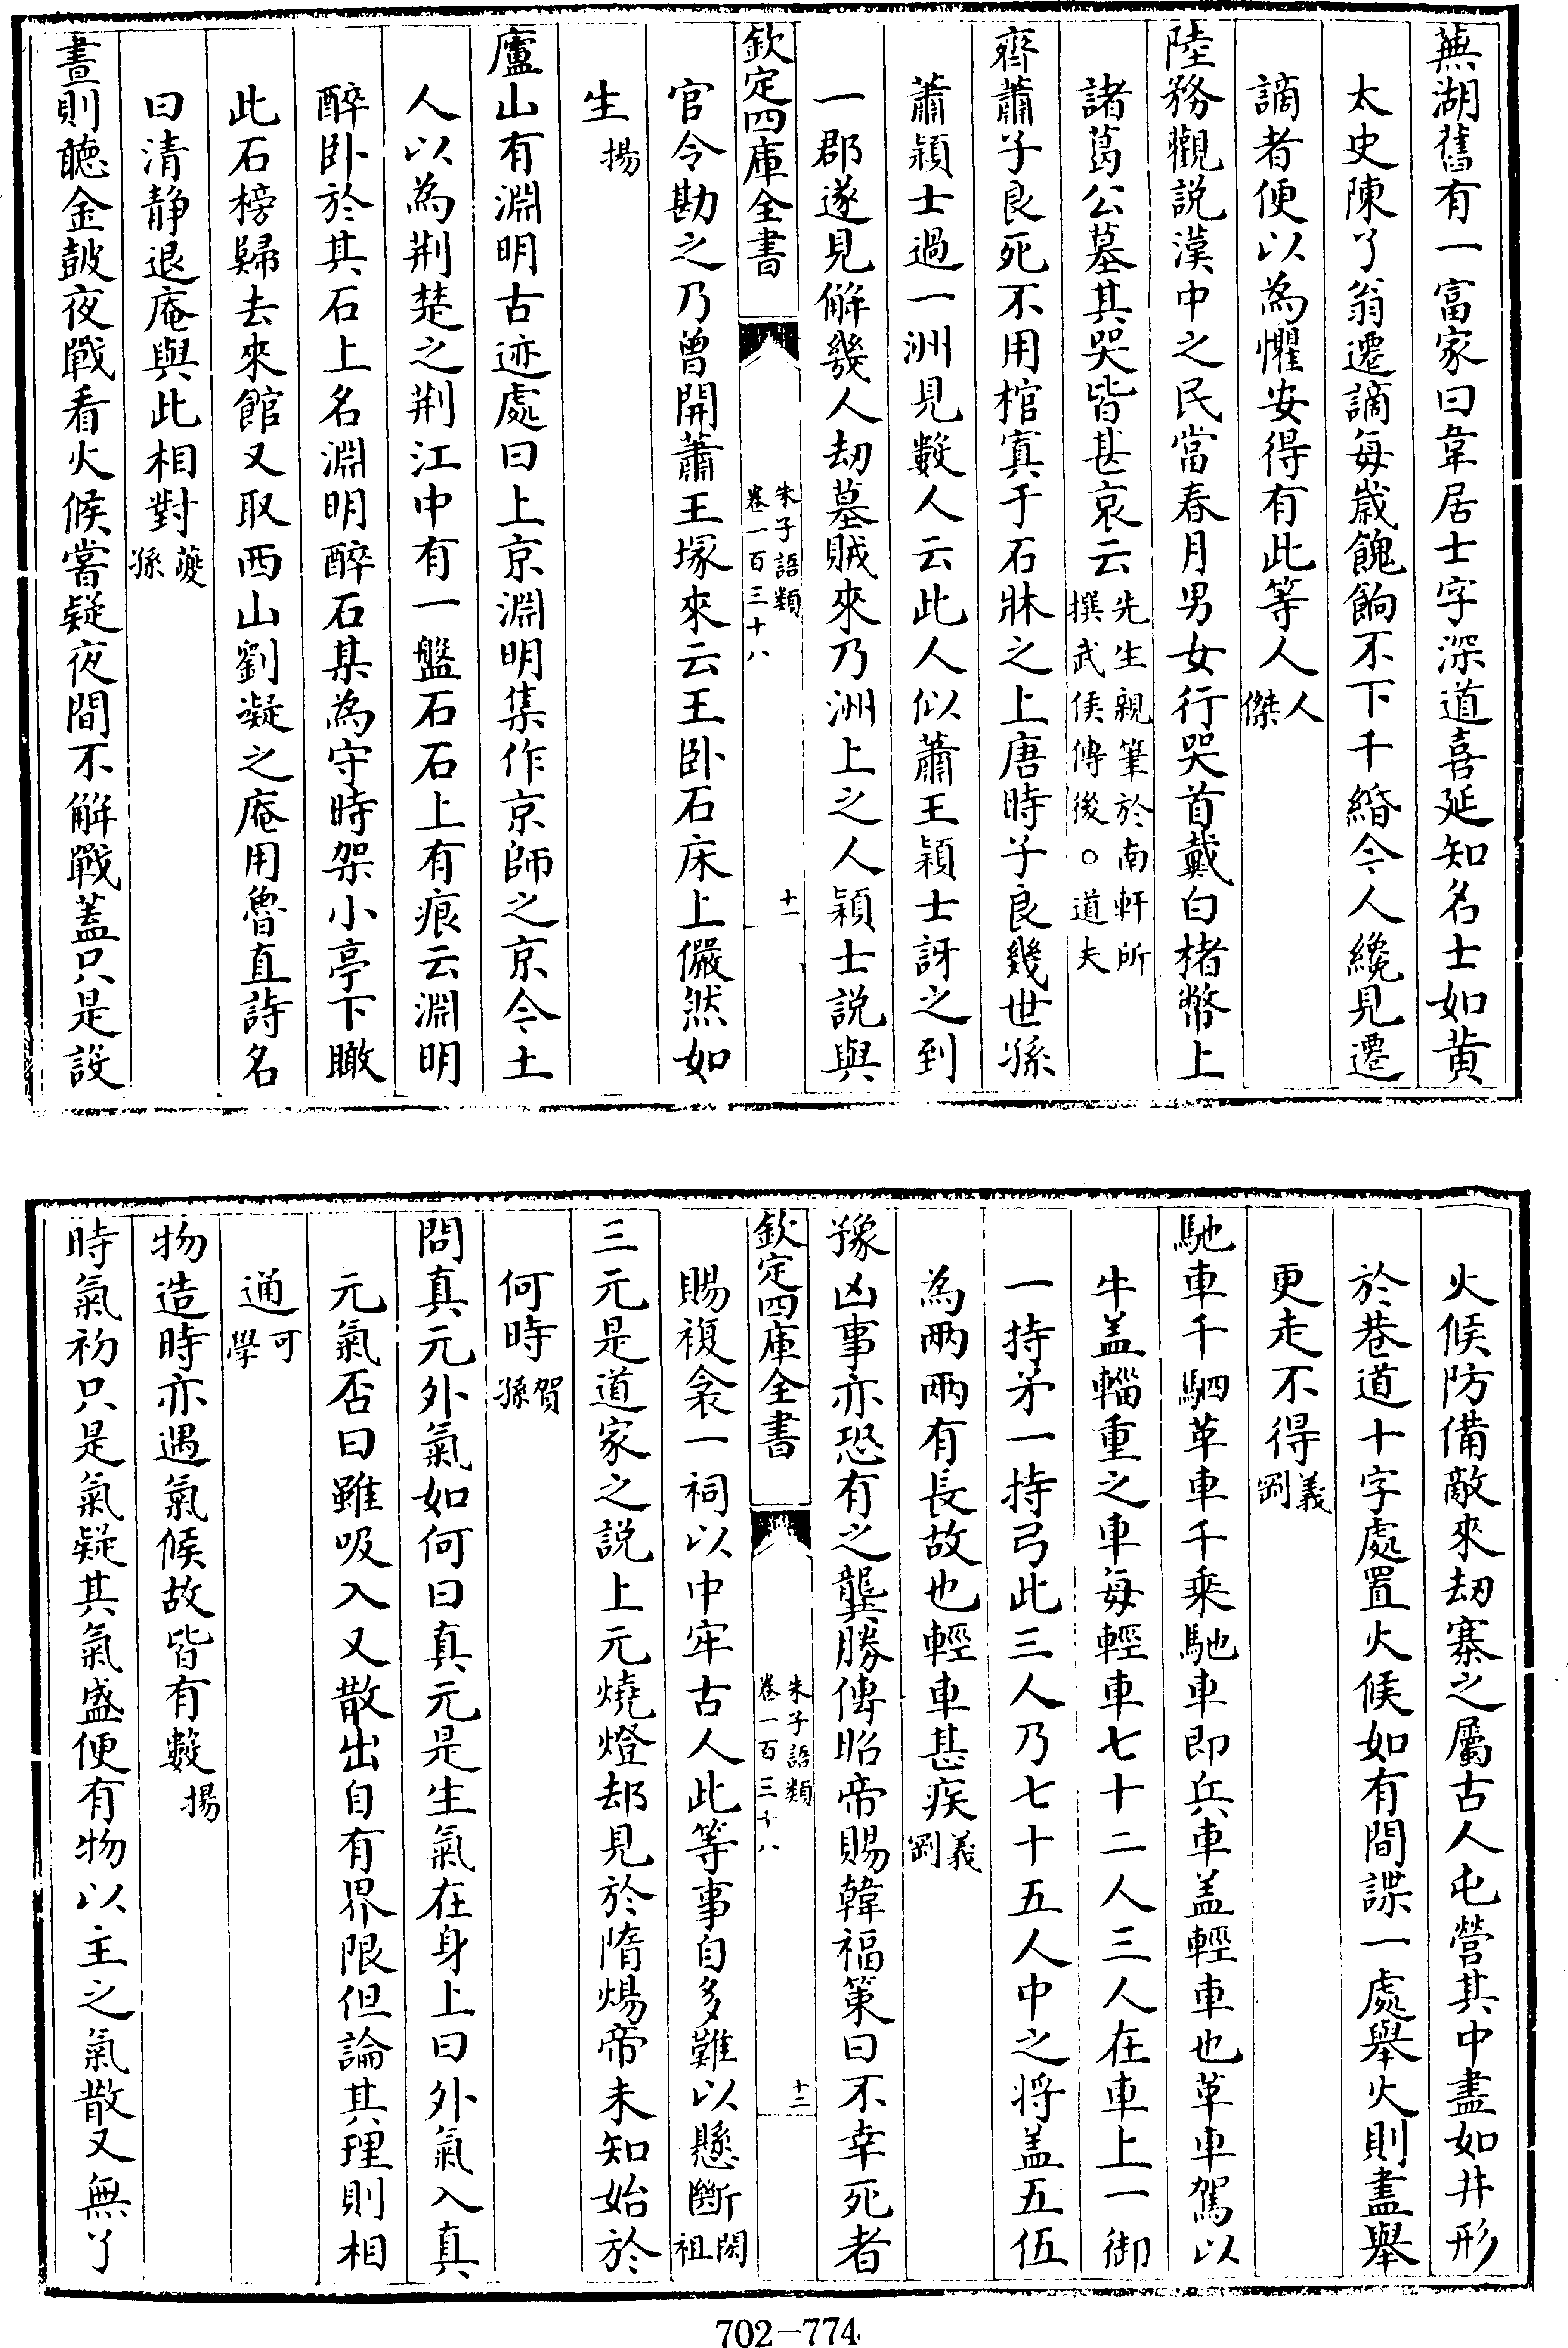 蕪湖舊有一富家曰韋居士字深道喜延知名士如黄
太史陳了翁遷謫每歳餽餉不下千緡今人纔見遷
謫者便以為懼安得有此等人人傑
陸務觀説漢中之民當春月男女行哭首戴白楮幣上
諸葛公墓其哭皆甚哀云先生親筆於南軒所撰武侯傳後○道夫
齊蕭子良死不用棺寘于石牀之上唐時子良幾世孫
蕭穎士過一洲見數人云此人似蕭王穎士訝之到
一郡遂見解幾人刼墓賊來乃洲上之人穎士説與
欽定四庫全書
朱子語類
卷一百三十八
十一
官令勘之乃曾開蕭王塚來云王卧石床上儼然如
生揚
廬山有淵明古迹處曰上京淵明集作京師之京今土
人以為荆楚之荆江中有一盤石石上有痕云淵明
醉卧於其石上名淵明醉石某為守時架小亭下瞰
此石榜歸去來館又取西山劉凝之庵用魯直詩名
曰清静退庵與此相對蘷孫
晝則聽金皷夜戰看火候嘗疑夜間不解戰蓋只是設
火候防備敵來刼寨之屬古人屯營其中盡如井形
於巷道十字處置火候如有間諜一處舉火則盡舉
更走不得義剛
馳車千駟革車千乘馳車即兵車盖輕車也革車駕以
牛盖輜重之車每輕車七十二人三人在車上一御
一持矛一持弓此三人乃七十五人中之将盖五伍
為兩兩有長故也輕車甚疾義剛
豫凶事亦恐有之龔勝傳昭帝賜韓福策曰不幸死者
欽定四庫全書
朱子語類
卷一百三十八
十二
賜複衾一祠以中牢古人此等事自多難以懸斷閎祖
三元是道家之説上元燒燈却見於隋煬帝未知始於
何時賀孫
問真元外氣如何曰真元是生氣在身上曰外氣入真
元氣否曰雖吸入又散出自有界限但論其理則相
通可學
物造時亦遇氣候故皆有數揚
時氣初只是氣疑其氣盛便有物以主之氣散又無了
702－774